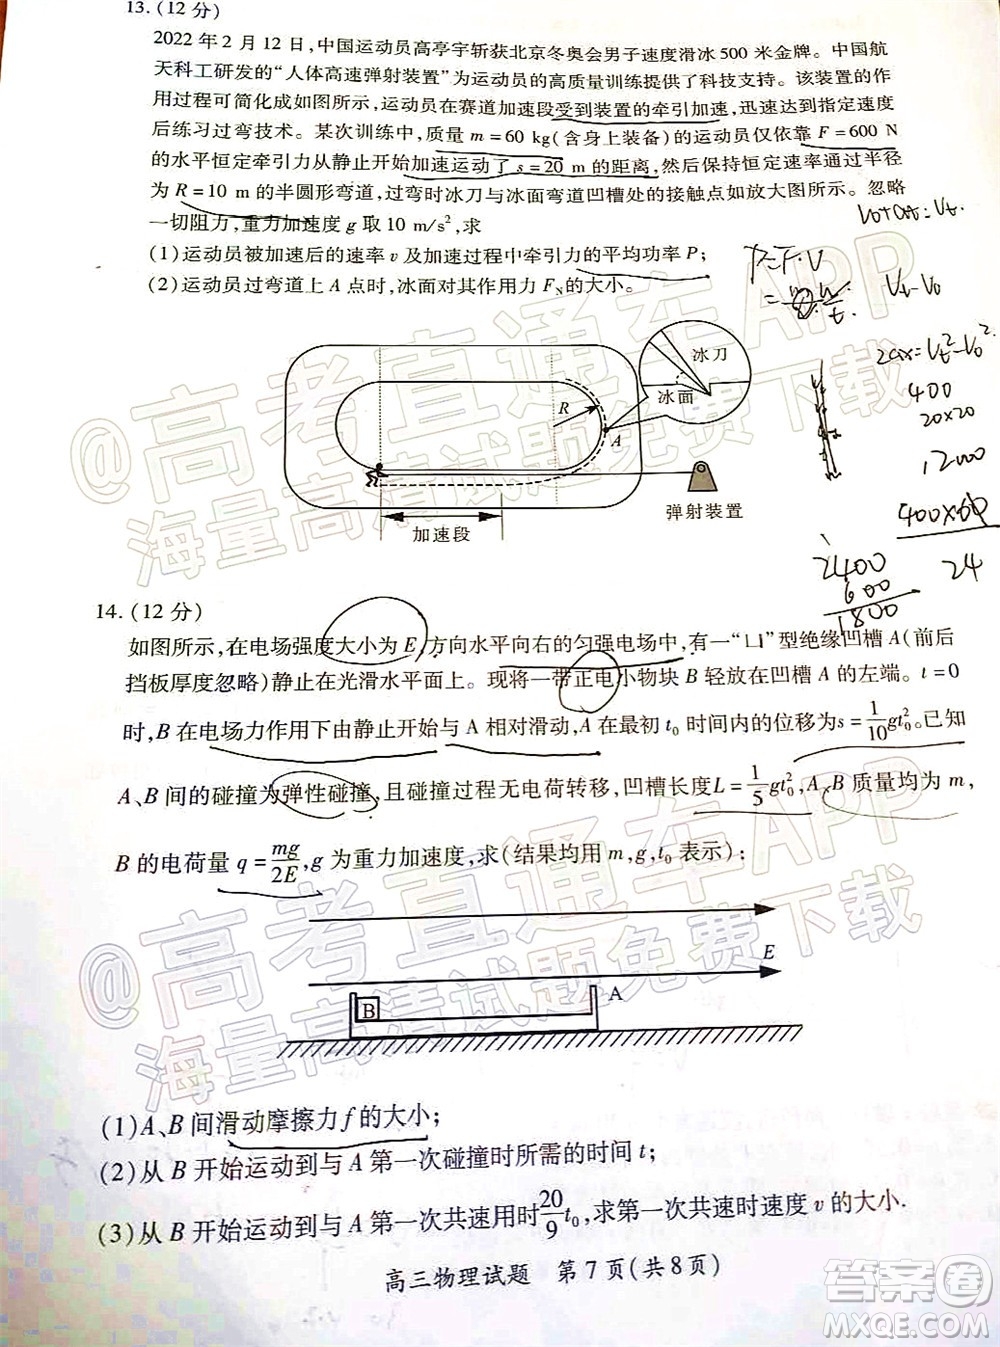 13.(12 分)
2022 年 2 月 12 日,中国运动员高亭宇斩获北京冬奥会男子速度滑冰 500 米金牌。中国航
天科工研发的“人体高速弹射装置”为运动员的高质量训练提供了科技支持。该装置的作
用过程可简化成如图所示,运动员在赛道加速段受到装置的牵引加速,迅速达到指定速度
后练习过弯技术。某次训练中,质量 m=60 kg(含身上装备)的运动员仅依靠 F=600 N
的水平恒定牵引力从静止开始加速运动了 s=20 m 的距离,然后保持恒定速率通过半径
为 R=10 m 的半圆形弯道,过弯时冰刀与冰面弯道凹槽处的接触点如放大图所示。忽略
一切阻力,重力加速度 g 取 10 m/s²,求
(1)运动员被加速后的速率 v 及加速过程中牵引力的平均功率 P;
(2)运动员过弯道上 A 点时,冰面对其作用力 F_N的大小。
V₀+at=Vₜ
P=F·V
Vₜ-V₀
2ax=Vₜ²-V₀²
400
20×20
1200
400×60
24
2400
600
1800
冰刀
冰面
R
A
弹射装置
加速段
14.(12 分)
如图所示,在电场强度大小为 E,方向水平向右的匀强电场中,有一“凵”型绝缘凹槽 A(前后
挡板厚度忽略)静止在光滑水平面上。现将一带正电小物块 B 轻放在凹槽 A 的左端。t=0
时,B 在电场力作用下由静止开始与 A 相对滑动,A 在最初 t₀ 时间内的位移为 s=1/10 gt₀²。已知
A、B 间的碰撞为弹性碰撞,且碰撞过程无电荷转移,凹槽长度 L=1/5 gt₀²,A、B 质量均为 m,
B 的电荷量 q=mg/2E,g 为重力加速度,求(结果均用 m,g,t₀ 表示);
E
B
A
(1)A、B 间滑动摩擦力 f 的大小;
(2)从 B 开始运动到与 A 第一次碰撞时所需的时间 t;
(3)从 B 开始运动到与 A 第一次共速用时20/9 t₀,求第一次共速时速度 v 的大小.
高三物理试题 第 7 页(共 8 页)
@高考直通车APP
海量高清试题免费下载
@高考直通车APP
海量高清试题免费下载
答案卷
MXQE.COM